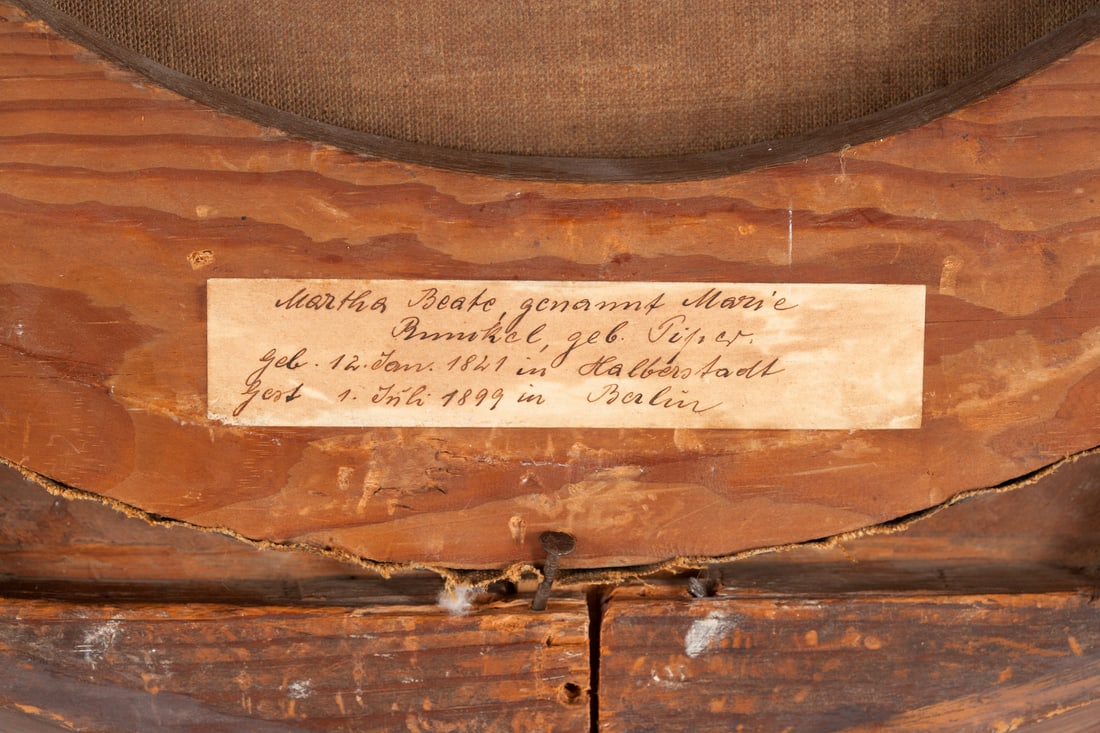 Martha Beate, genannt Marie
Runkel, geb. Piper.
Geb. 12. Jan. 1821 in Halberstadt
Gest 1. Júli 1899 in Berlin